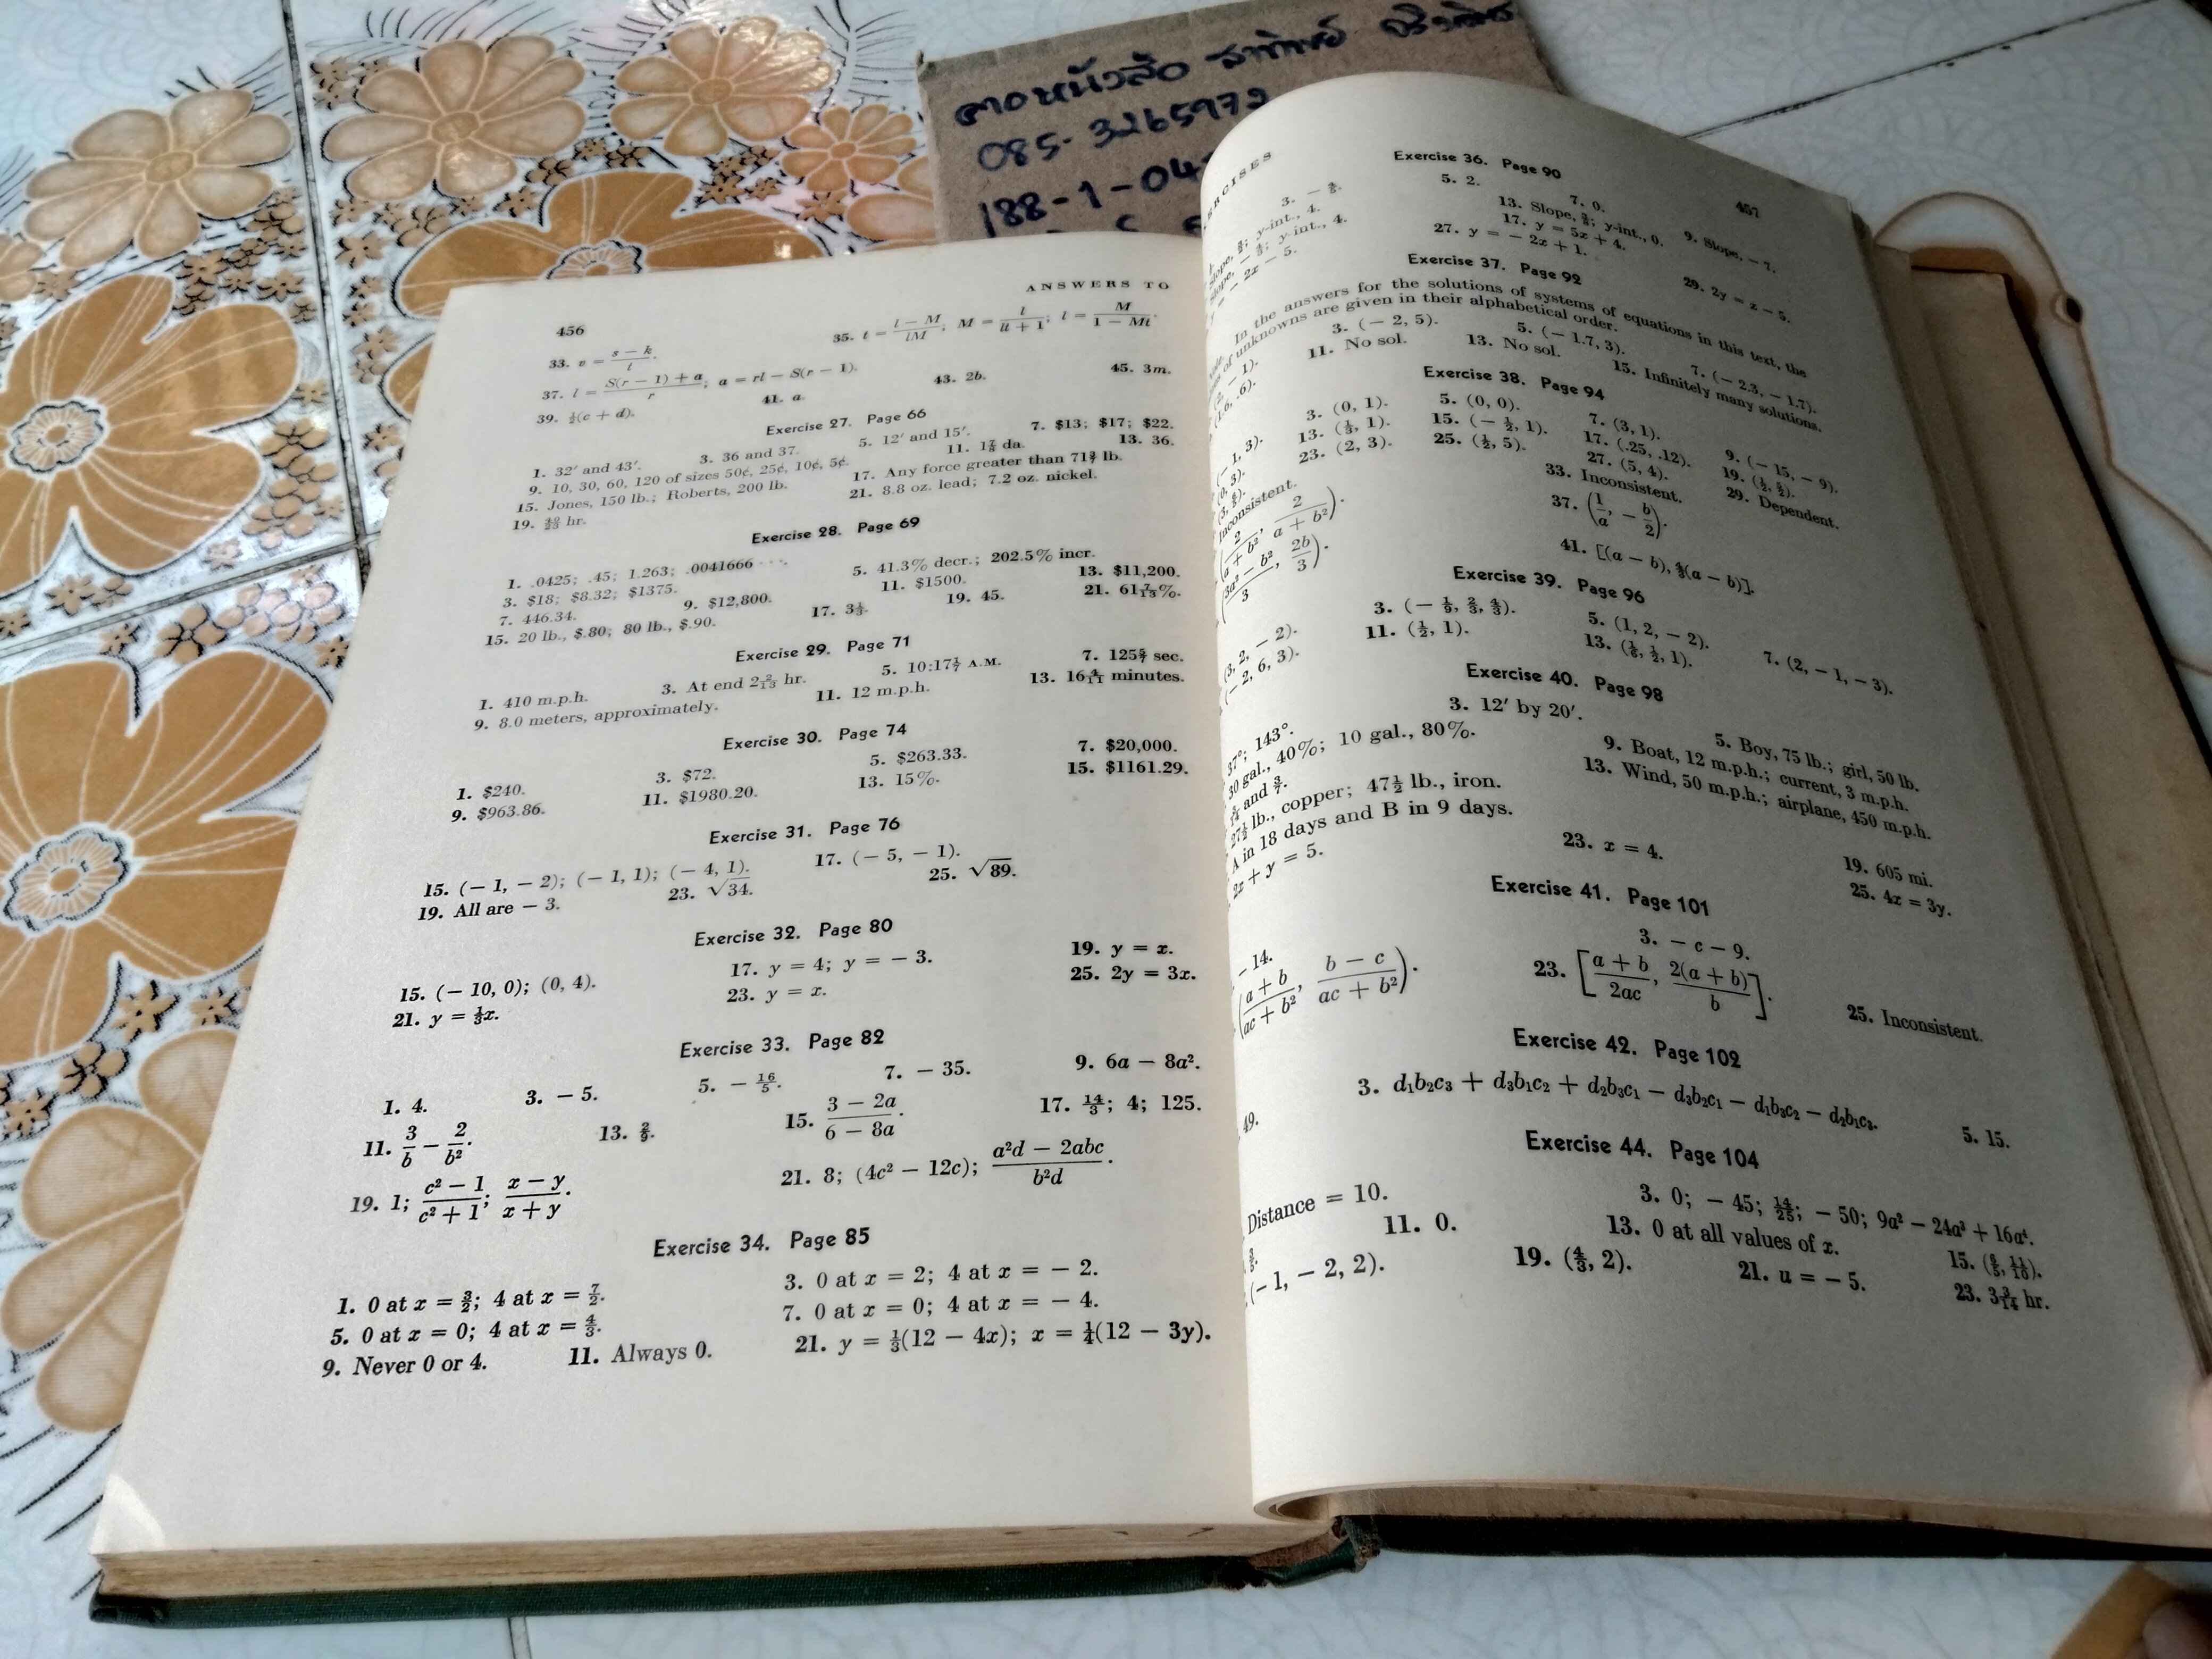 085-3265972
188-1-04
456
ANSWERS TO
33. v = (s − k)/t.
35. t = (l − M)/(lM); M = l/(lt + 1); l = M/(1 − Mt).
37. l = (S(r − 1) + a)/r; a = rl − S(r − 1).
39. ½(c + d). 41. a. 43. 2b. 45. 3m.
Exercise 27. Page 66
1. 32′ and 43′. 3. 36 and 37. 5. 12′ and 15′. 7. $13; $17; $22.
9. 10, 30, 60, 120 of sizes 50¢, 25¢, 10¢, 5¢. 11. 1⅞ da. 13. 36.
15. Jones, 150 lb.; Roberts, 200 lb. 17. Any force greater than 71 3/7 lb.
19. hr. 21. 8.8 oz. lead; 7.2 oz. nickel.
Exercise 28. Page 69
1. .0425; .45; 1.263; .0041666 ···.
3. $18; $8.32; $1375. 5. 41.3% decr.; 202.5% incr.
7. 446.34. 9. $12,800. 11. $1500. 13. $11,200.
15. 20 lb., $.80; 80 lb., $.90. 17. 3⅓. 19. 45. 21. 61 7/13%.
Exercise 29. Page 71
1. 410 m.p.h. 3. At end 2 2/13 hr. 5. 10:17 1/7 A.M. 7. 125 5/7 sec.
9. 8.0 meters, approximately. 11. 12 m.p.h. 13. 16 4/11 minutes.
Exercise 30. Page 74
1. $240. 3. $72. 5. $263.33. 7. $20,000.
9. $963.86. 11. $1980.20. 13. 15%. 15. $1161.29.
Exercise 31. Page 76
15. (− 1, − 2); (− 1, 1); (− 4, 1). 17. (− 5, − 1).
19. All are − 3. 23. √34. 25. √89.
Exercise 32. Page 80
15. (− 10, 0); (0, 4). 17. y = 4; y = − 3. 19. y = x.
21. y = ⅓x. 23. y = x. 25. 2y = 3x.
Exercise 33. Page 82
1. 4. 3. − 5. 5. − 16/5. 7. − 35. 9. 6a − 8a².
11. 3/b − 2/b². 13. 2/9. 15. (3 − 2a)/(6 − 8a). 17. 14/3; 4; 125.
19. 1; (c² − 1)/(c² + 1); (x − y)/(x + y). 21. 8; (4c² − 12c); (a²d − 2abc)/(b²d).
Exercise 34. Page 85
1. 0 at x = 3/2; 4 at x = 7/2. 3. 0 at x = 2; 4 at x = − 2.
5. 0 at x = 0; 4 at x = 4/3. 7. 0 at x = 0; 4 at x = − 4.
9. Never 0 or 4. 11. Always 0. 21. y = ⅓(12 − 4x); x = ¼(12 − 3y).
ERCISES
457
Exercise 36. Page 90
5. 2. 7. 0. 9. Slope, − 7.
y-int., 4. 13. Slope, y-int., 0.
y-int., 4. 17. y = 5x + 4.
− 2x − 5. 27. y = − 2x + 1. 29. 2y = x − 5.
Exercise 37. Page 92
In the answers for the solutions of systems of equations in this text, the
of unknowns are given in their alphabetical order.
3. (− 2, 5). 5. (− 1.7, 3). 7. (− 2.3, − 1.7).
(1.6, .6). 11. No sol. 13. No sol. 15. Infinitely many solutions.
Exercise 38. Page 94
(− 1, 3). 3. (0, 1). 5. (0, 0). 7. (3, 1). 9. (− 15, − 9).
13. (⅓, 1). 15. (− ½, 1). 17. (.25, .12).
23. (2, 3). 25. (½, 5). 27. (5, 4). 29. Dependent.
Inconsistent. 33. Inconsistent.
(2/(a + b²), 2/(a + b²)). 37. (1/a, − b/2).
((3a² − b²)/3, 2b/3). 41. [(a − b), (a − b)].
Exercise 39. Page 96
(3, 2, − 2). 3. (− 1/9, 2/3, 4/3). 5. (1, 2, − 2). 7. (2, − 1, − 3).
(− 2, 6, 3). 11. (½, 1). 13. (1/6, ½, 1).
Exercise 40. Page 98
37°; 143°. 3. 12′ by 20′. 5. Boy, 75 lb.; girl, 50 lb.
30 gal., 40%; 10 gal., 80%. 9. Boat, 12 m.p.h.; current, 3 m.p.h.
and 13. Wind, 50 m.p.h.; airplane, 450 m.p.h.
27½ lb., copper; 47½ lb., iron.
A in 18 days and B in 9 days. 19. 605 mi.
2x + y = 5. 23. x = 4. 25. 4x = 3y.
Exercise 41. Page 101
− 14. 3. − c − 9.
((a + b)/(ac + b²), (b − c)/(ac + b²)). 23. [(a + b)/(2ac), 2(a + b)/b]. 25. Inconsistent.
Exercise 42. Page 102
49. 3. d₁b₂c₃ + d₃b₁c₂ + d₂b₃c₁ − d₃b₂c₁ − d₁b₃c₂ − d₂b₁c₃. 5. 15.
Exercise 44. Page 104
Distance = 10. 3. 0; − 45; 14/25; − 50; 9a² − 24a³ + 16a⁴.
11. 0. 13. 0 at all values of x. 15. (8/5, 11/10).
(−1, − 2, 2). 19. (4/3, 2). 21. u = − 5. 23. 3 3/14 hr.